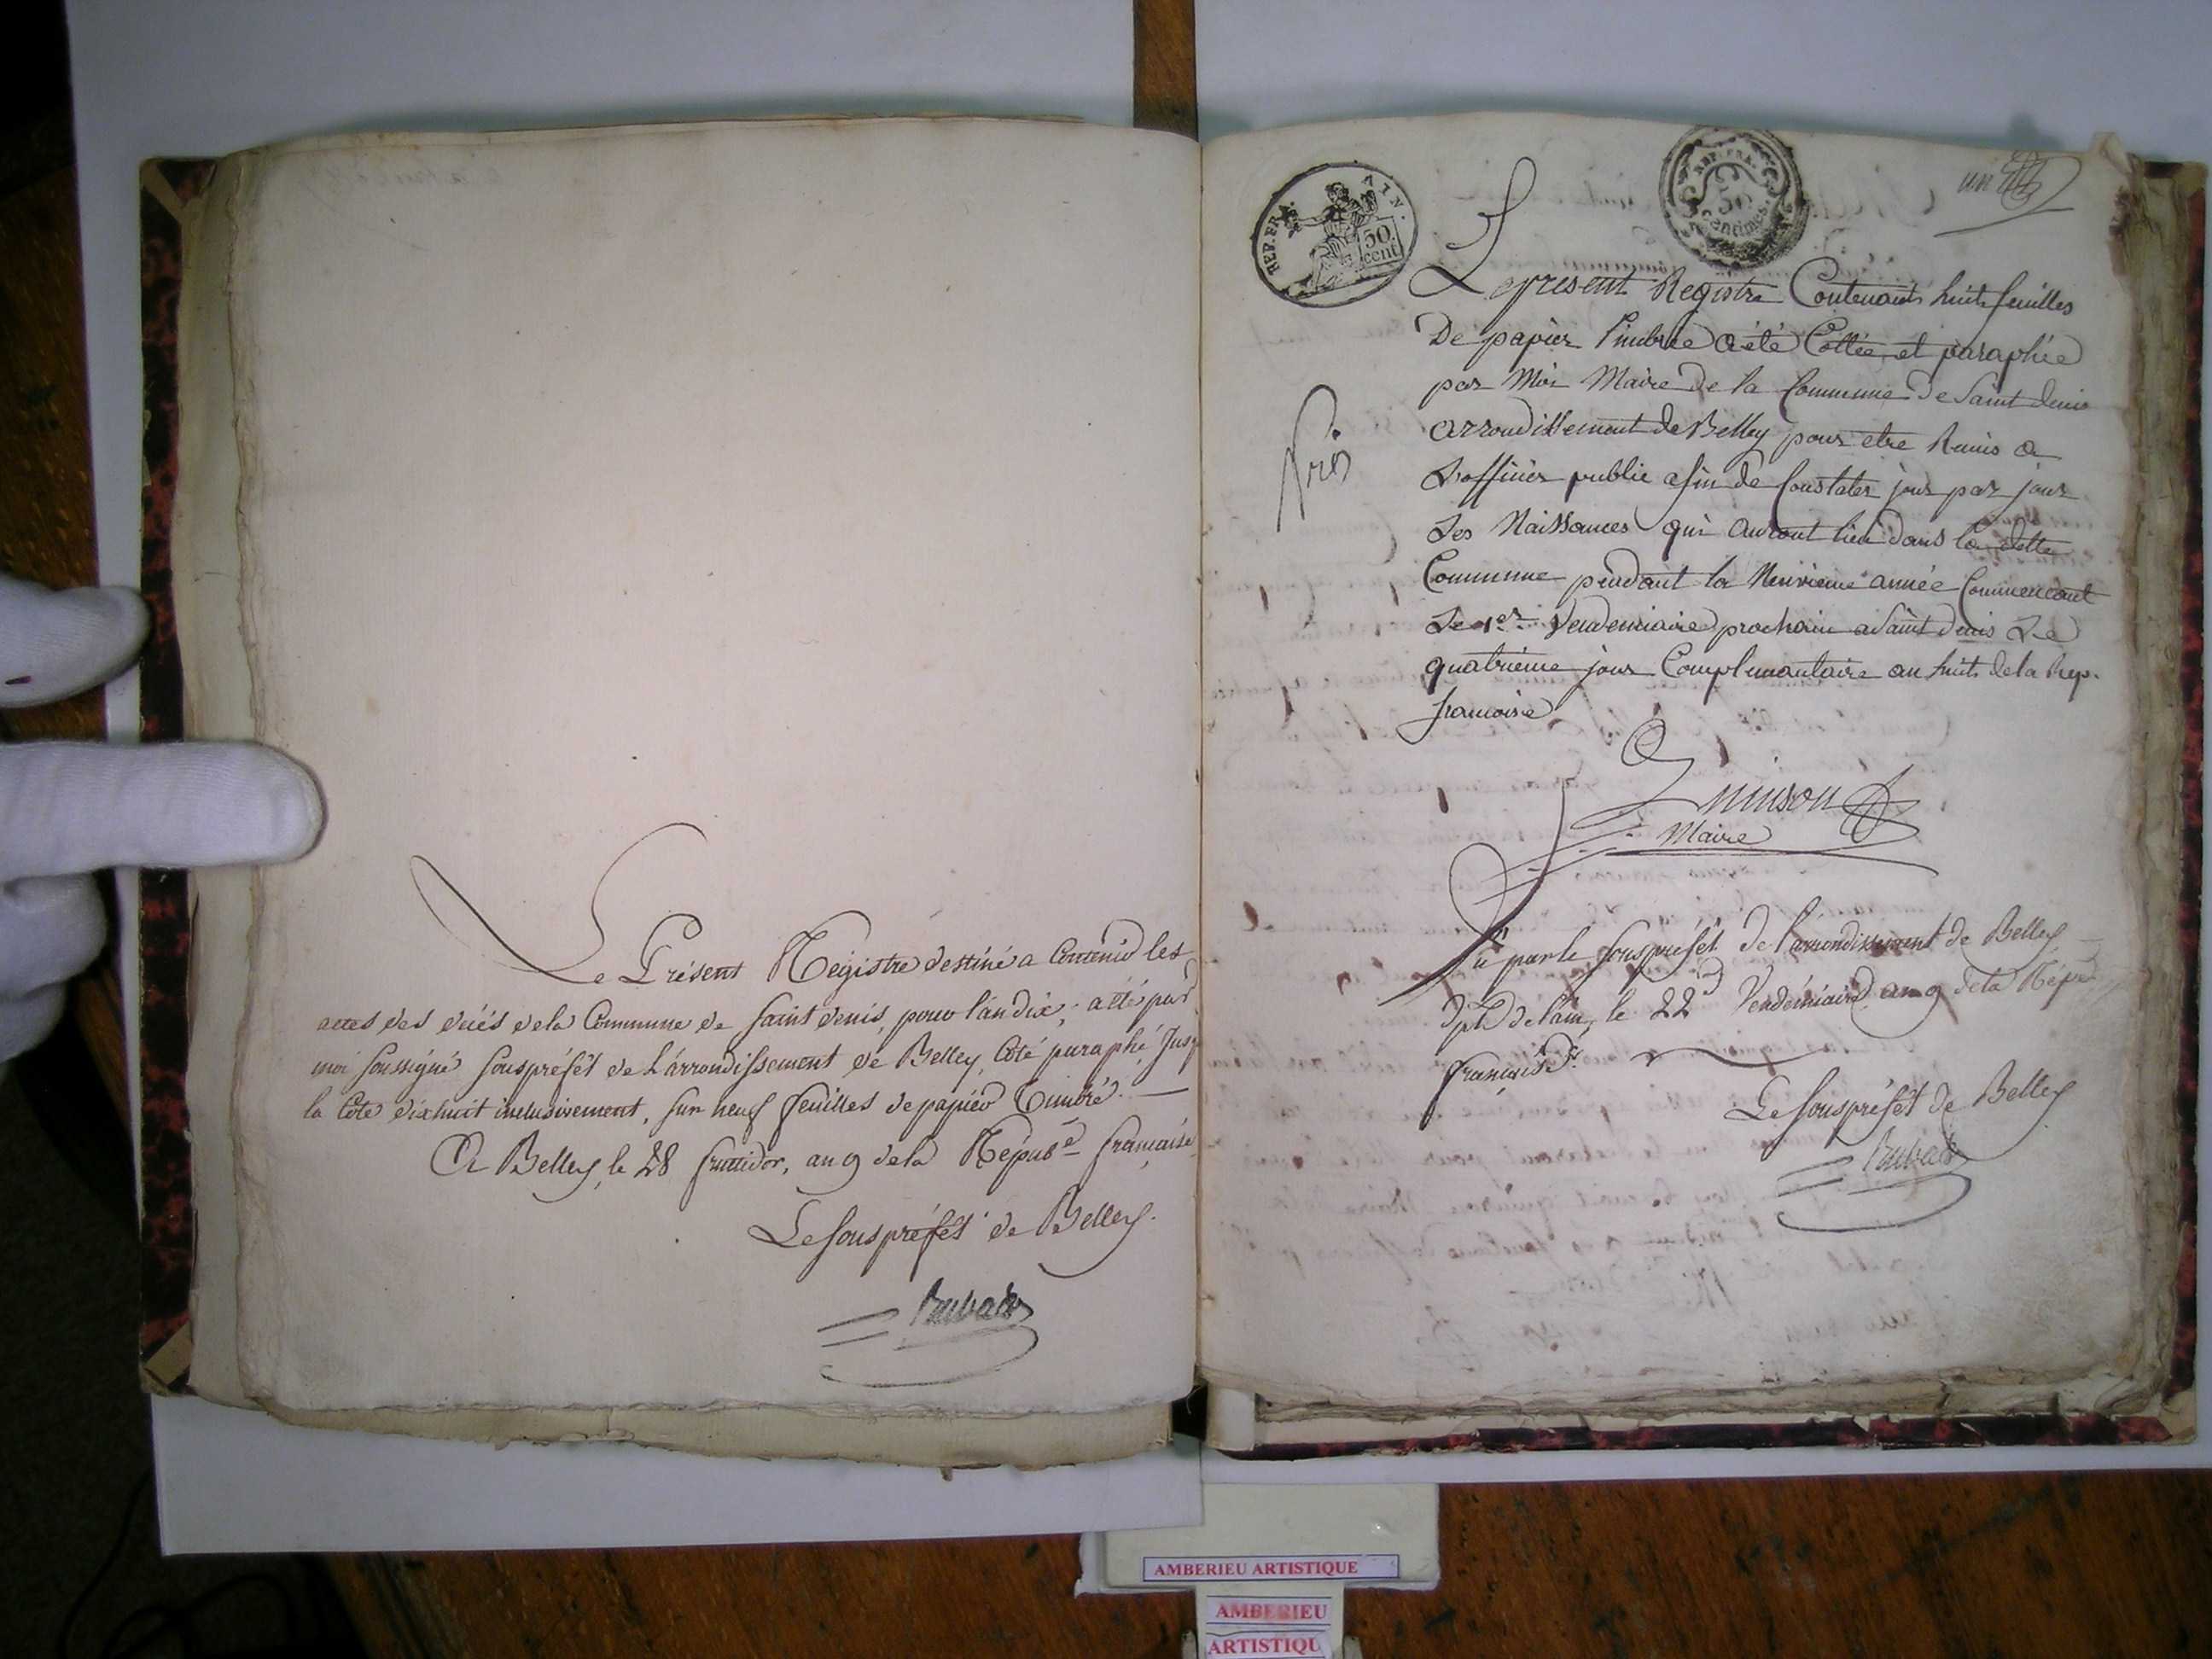 Le Présent Registre destiné a Contenir les
actes des décés dela Commune de Saint denis, pour l'an dix, a été par
moi soussigné souspréfét de L'arrondissement de Belley, Coté paraphé Jusq
la Cote dixhuit inclusivement, sur neuf feuilles depapier Timbré. —
A Belley, le 28 fructidor, an 9 dela Répub.e française
Le souspréfét de Belley.
REP. FRA.
AIN.
50.
cent
REP. FRA.
50
centimes
un
Le present Registre Contenant huit feuilles
De papier Timbrée a été Cottée et paraphée
par Moi Maire de la Commune de Saint denis
arrondissement de Belley pour etre Remis a
L'officier public afin de Constater jour par jour
Les Naissances qui auront lieu dans la ditte
Commune pendant la Neuvieme année Commencant
Le 1er Vendemiaire prochain a Saint denis Le
quatrieme jour Complimantaire an huit de la Rep.
francoise
Maire
Vu par le souspréfét de l'arrondissement de Belley
Dpt de l'ain, le 22 Vendémiaire an 9 de la Répub
française.
Le souspréfét de Belley
AMBERIEU ARTISTIQUE
AMBERIEU
ARTISTIQU